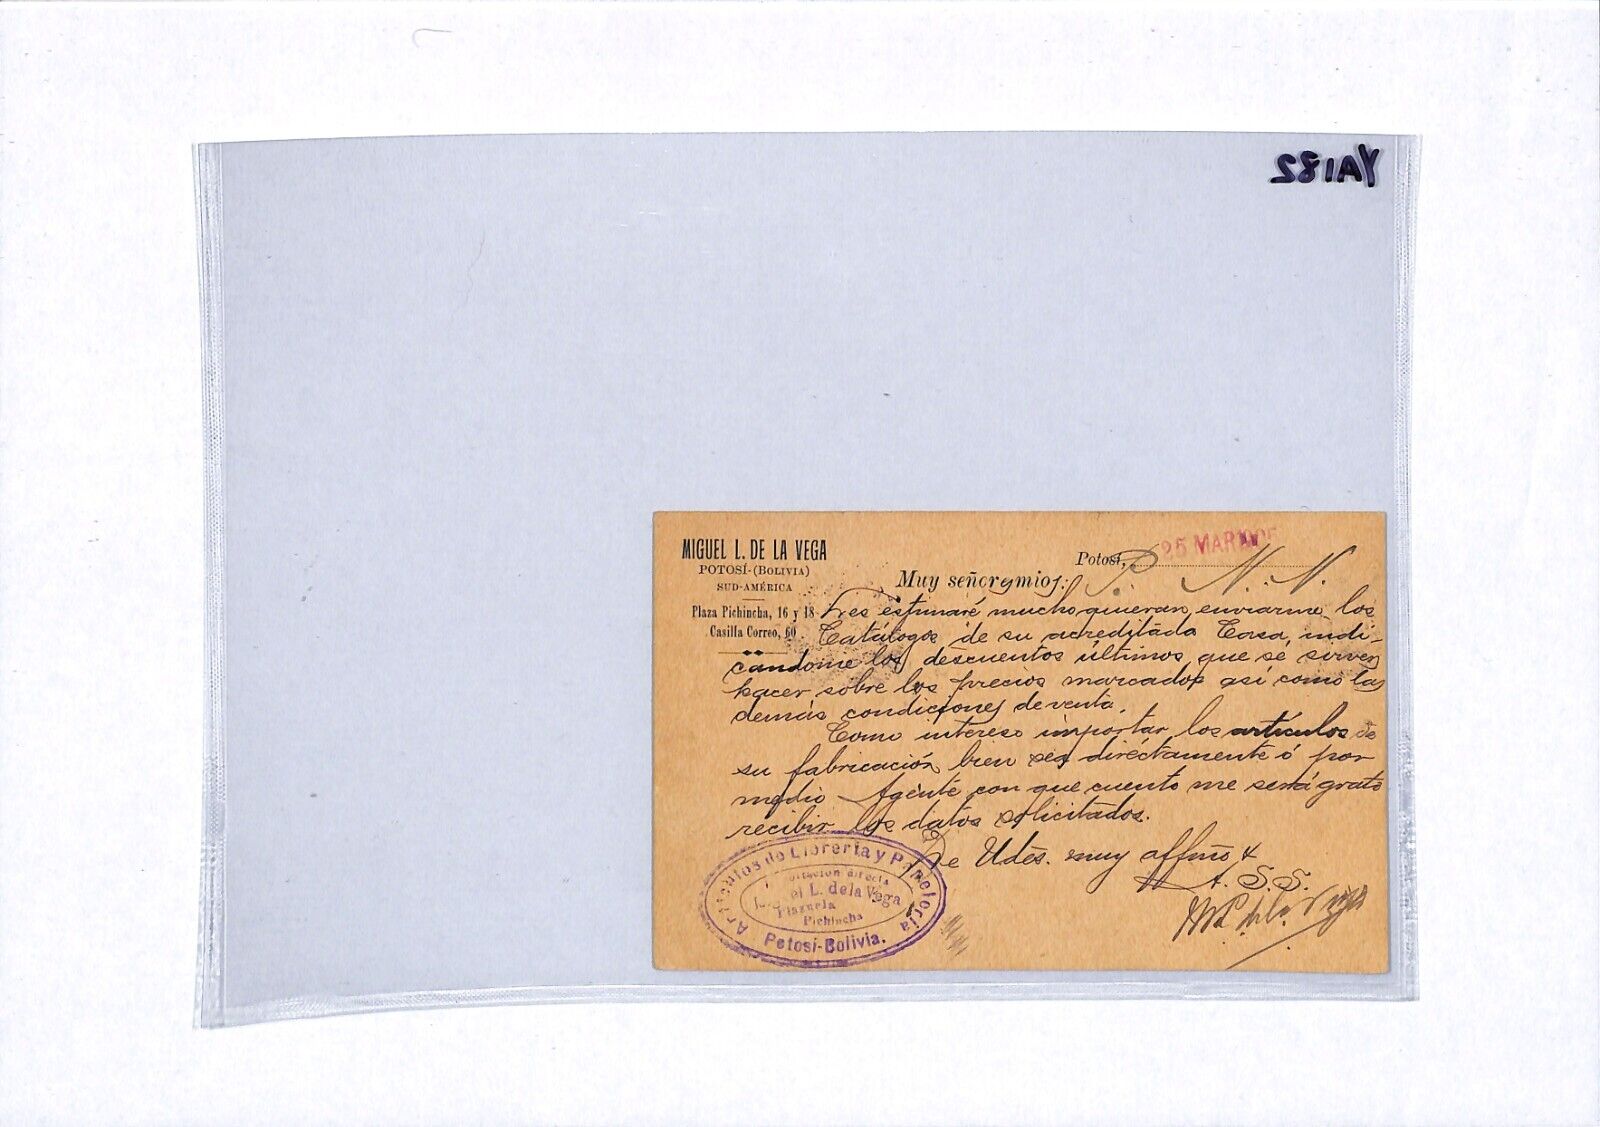 YA182
MIGUEL L. DE LA VEGA
POTOSÍ-(BOLIVIA)
SUD-AMÉRICA
Plaza Pichincha, 16 y 18
Casilla Correo, 60
Potosí, 25 MAR
Muy señores míos: P. N. N.
Les estimaré mucho quieran enviarme los
Catálogos de su acreditada Casa, indi-
cándome los descuentos últimos que se sirven
hacer sobre los precios marcados así como las
demás condiciones de venta.
Como intereso importar los artículos de
su fabricación bien sea diréctamente ó por
medio Agente con que cuento me será grato
recibir los datos solicitados.
De Udes. muy affmo &
A. S. S.
M L de la Vega
Artículos de Librería y Papelería
Miguel L. de la Vega
Plazuela
Pichincha
Potosí-Bolivia.